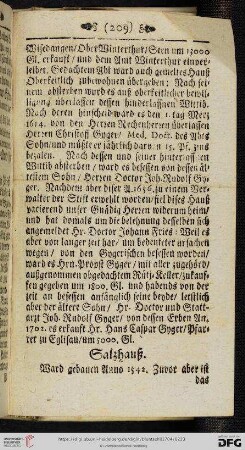 (209)
Wisedangen/OberWinterthur/Sten um 13000
Gl. erkaufft/ und dem Amt Winterthur einver-
leibet. Gedachtem Abt ward auch gemeltes Hauß
Oberkeitlich zubewohnen übergeben: Nach sei-
nem absterben ward es auß oberkeitlicher bewil-
ligung überlassen dessen hinderlaßnen Wittib.
Nach deren hinscheid ward es den 1. tag Mertz
1614. von den Herren Rechenherren überlassen
Herren Christoff Gyger/ Med. Doct. des Mag
Sohn/ und müßt er jährlich darvon 15. Pf. zins
bezalen. Nach dessen und seiner hinterlassnen
Wittib absterben/ ward es dessen von dessen äl-
testem Sohn/ Herren Doctor Joh. Rudolf Gy-
ger. Nachdem aber diser A. 1656. zu einem Ver-
walter der Stift erwehlt worden/ fiel dises Hauß
vacierend unser Gnädig Herren widerum heim/
und hat domals um die belehnung desselben sich
angemeldet Hr. Doctor Johann Fries: Weil es
aber von langer zeit har/ um bedeuteter ursachen
wegen/ von den Gygerischen besessen worden/
ward es Hrn. Propst Gyger/ mit aller zugehörd/
außgenommen obgedachtem Rüti-Keller/ zukauf-
fen gegeben um 1800. Gl. und habends von der
zeit an besessen anfänglich seine beyde/ letstlich
aber der ältere Sohn/ Hr. Doctor und Statt-
artzt Joh. Rudolf Gyger/ von dessen Erben An.
1702. es erkauft Hr. Hans Caspar Gyger/ Pfar-
rer zu Eglisau/ um 5000. Gl.
Saltzhauß.
Ward gebauen Anno 1542. Zuvor aber ist
das